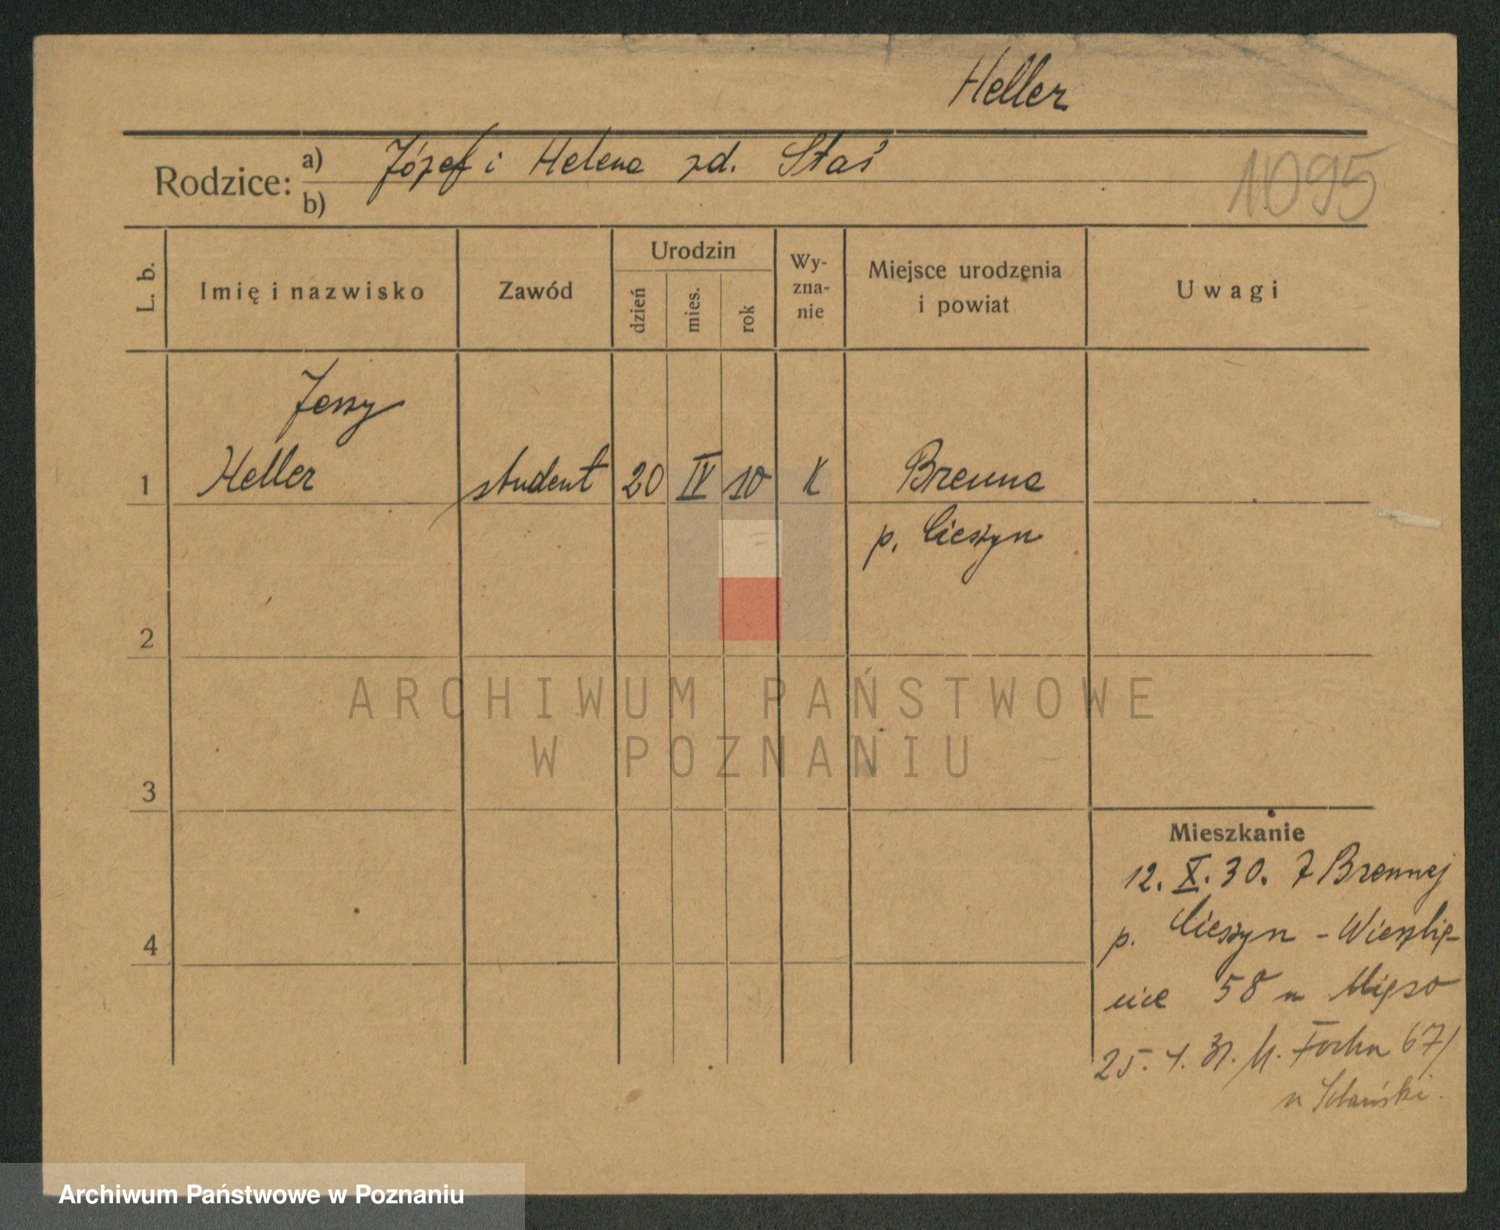 Heller
Rodzice: a) Józef i Helena zd. Staś
b)
1095
L. b.
Imię i nazwisko
Zawód
Urodzin
dzień
mies.
rok
Wy-
zna-
nie
Miejsce urodzenia
i powiat
Uwagi
Jerzy
1 Heller student 20 IV 10 K Brenna
p. Cieszyn
2
3
4
Mieszkanie
12. X. 30. z Brennej
p. Cieszyn - Wierzbię-
cice 58
25. 30. Focha 67/
ARCHIWUM PAŃSTWOWE
W POZNANIU
Archiwum Państwowe w Poznaniu